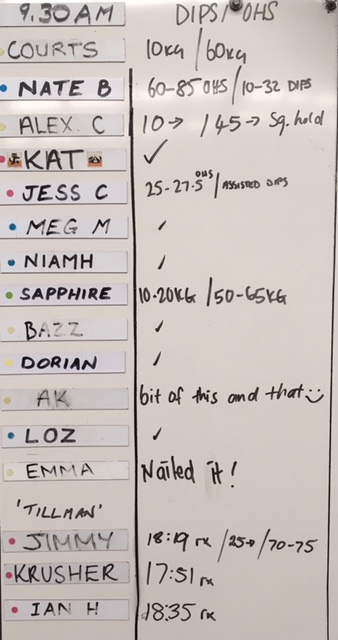 9.30 AM DIPS/OHS
COURTS 10kg / 60kg
NATE B 60-85 OHS / 10-32 DIPS
ALEX C 10→ / 45→ Sq. hold
KAT ✓
JESS C 25-27.5 OHS / ASSISTED DIPS
MEG M ✓
NIAMH ✓
SAPPHIRE 10-20KG / 50-65KG
BAZZ ✓
DORIAN ✓
AK bit of this and that
LOZ ✓
EMMA Nailed it!
'TILLMAN'
JIMMY 18:19 rx / 25→ / 70-75
KRUSHER 17:51 rx
IAN H 18:35 rx